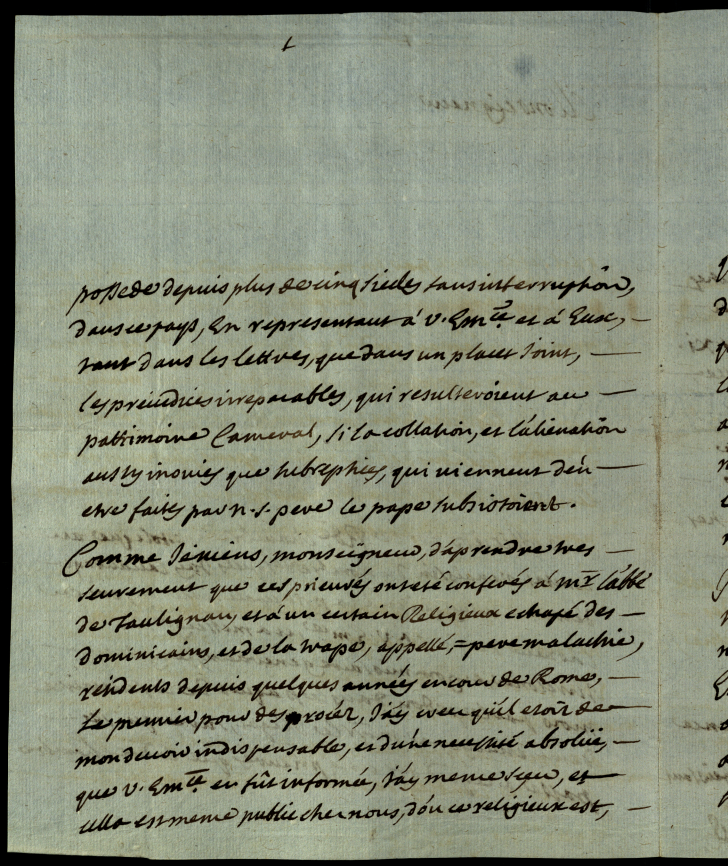 possede depuis plus de cinq siecles sans interruption,
dans ce pays, En representant á V. Em.ce et á Eux, —
tant dans les lettres, que dans un placet Joint, —
les prejudices irreparables, qui resulteroient au —
patrimoine Cameral, Si la collation, et l'alienation
aussy inouies que Subreptices, qui viennent d'en —
etre faites par n. S. pere le pape Subsistoient.
Comme Je viens, monseigneur, d'aprendre tres —
seurement que ces prieurés ont eté conferés á mr. l'abbé
de Taulignan, et á un certain Religieux echapé des —
dominicains, et de la trape, appellé, = pere malachie,
residents depuis quelques années en cour de Rome, —
Le premier pour des procéz, J'ay creu qu'il etoit de —
mon devoir indispensable, et d'une necessité absolüe, —
que V. Em.ce en fût informée, J'ay meme sçeu, et —
cella est meme public chez nous, d'ou ce religieux est, —